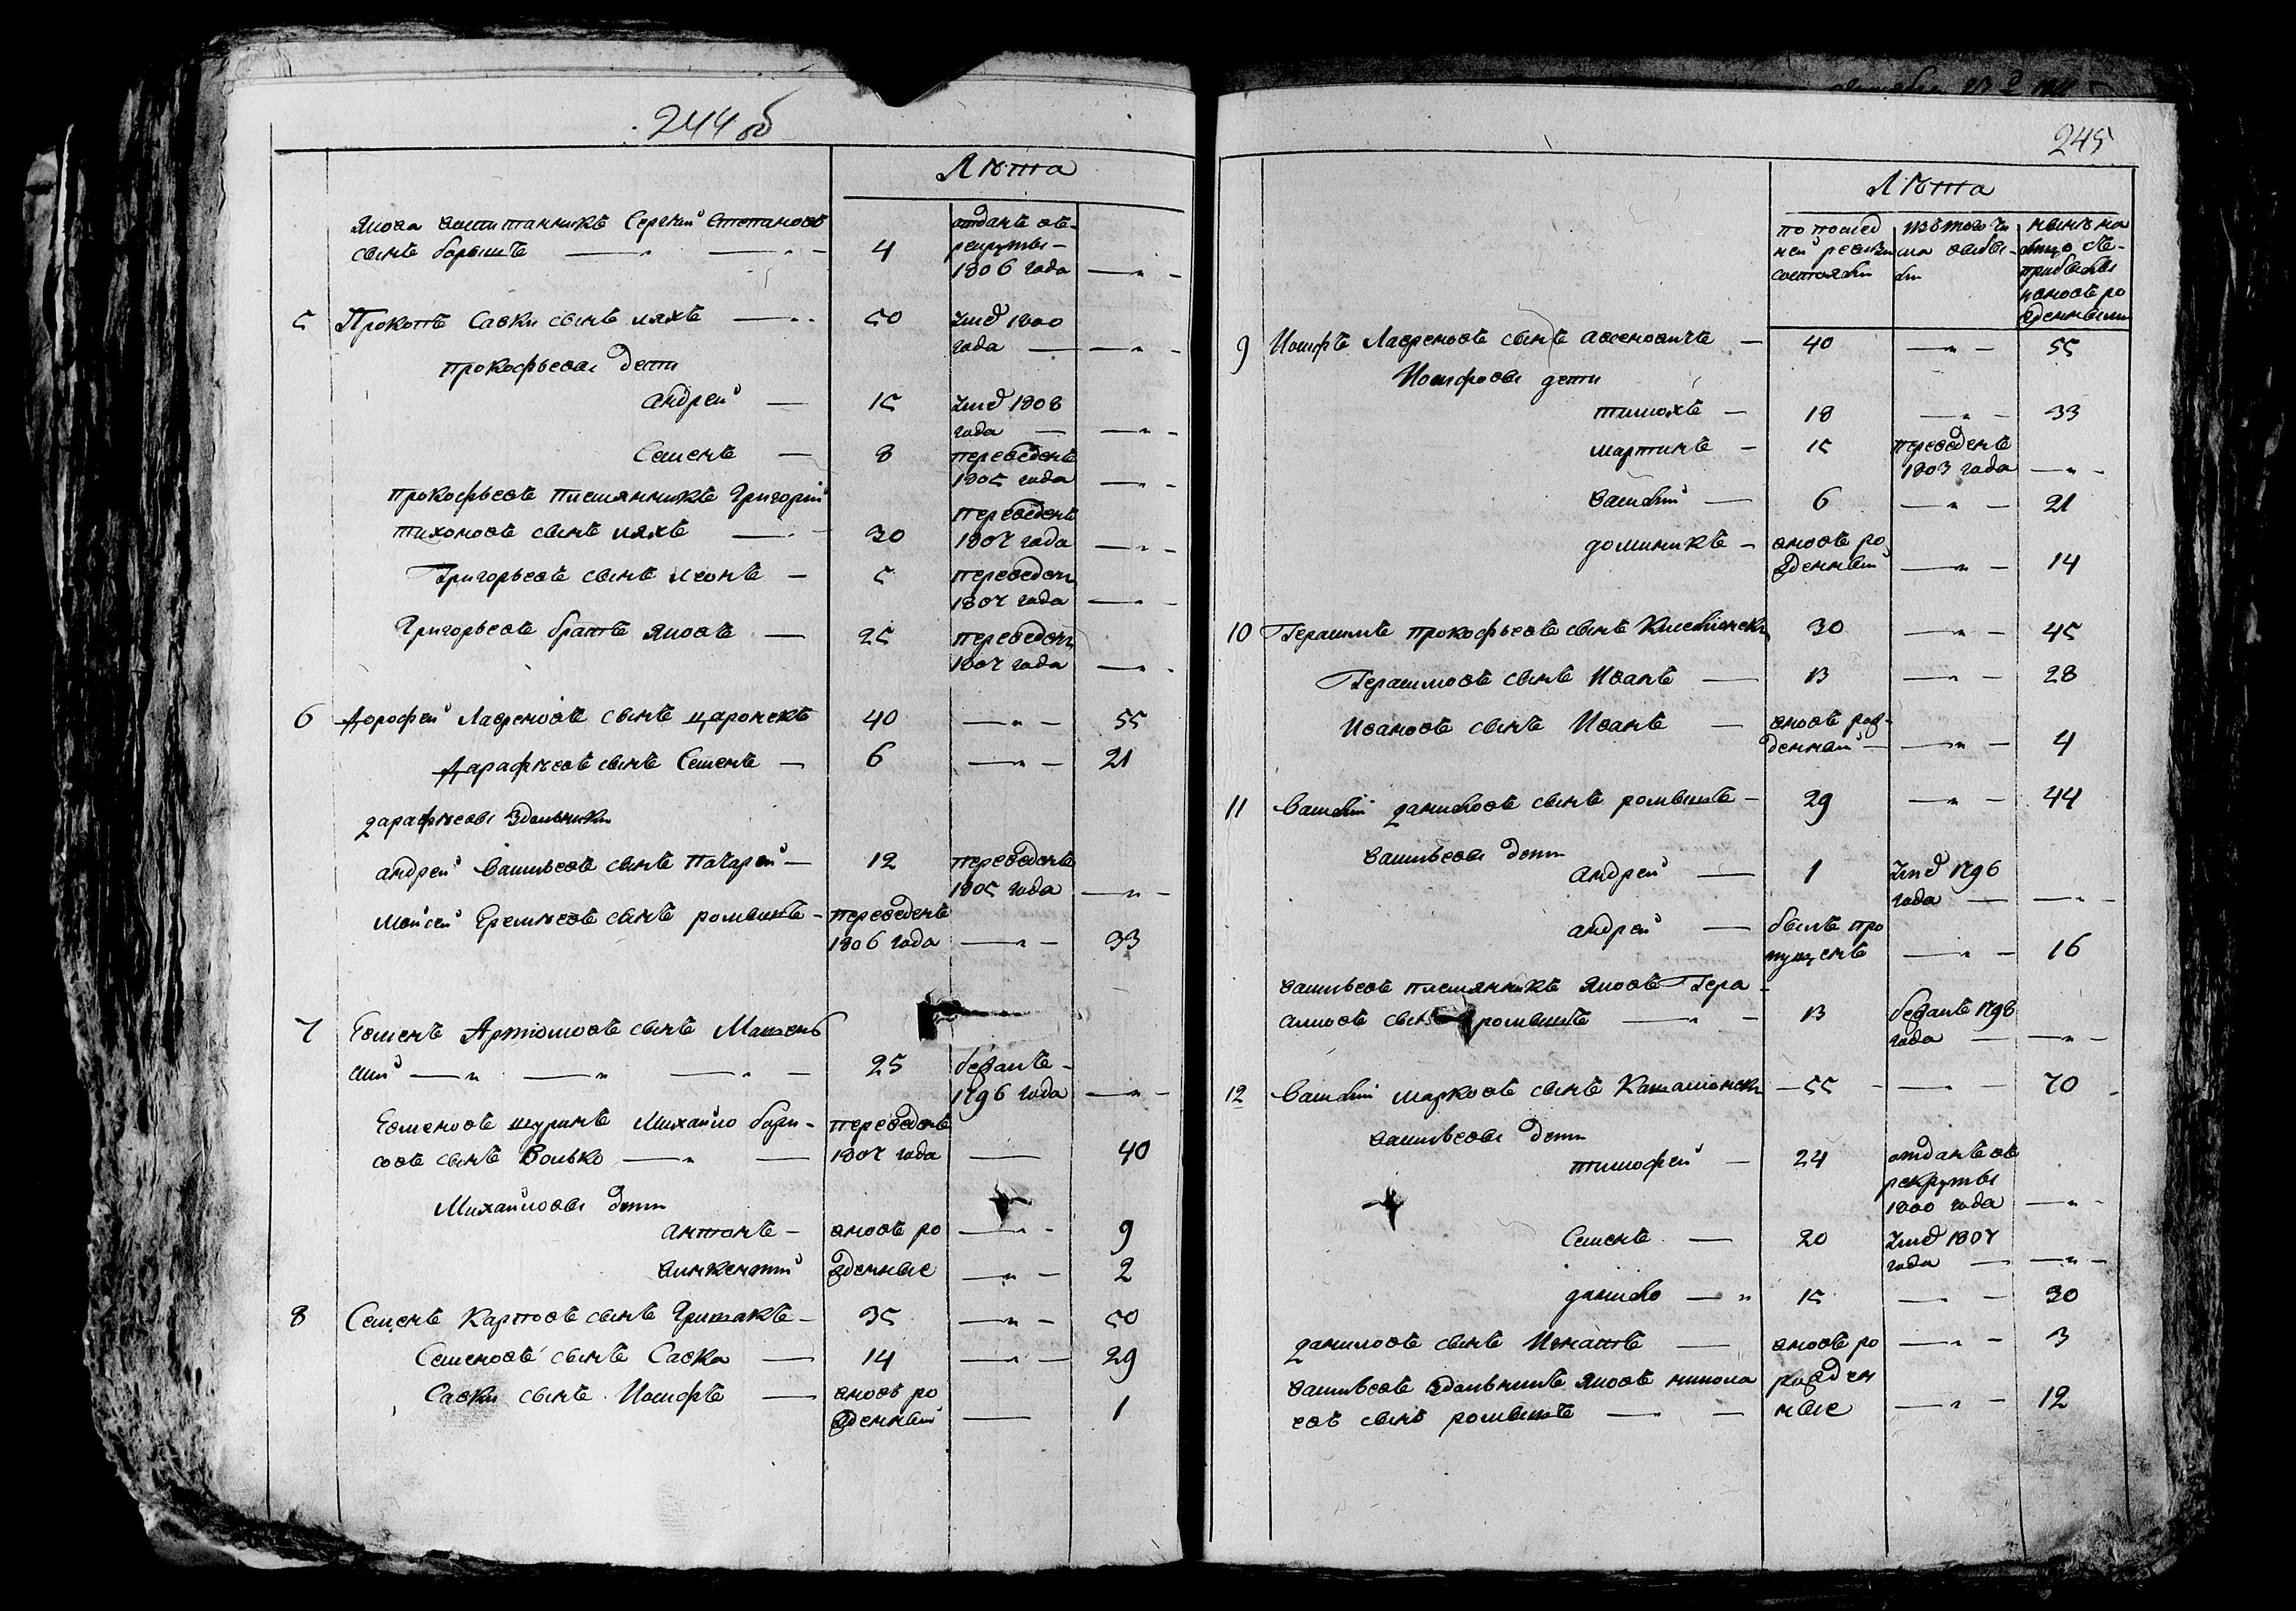 244 об
Лѣта
Якова воспитанникъ Сергей Степановъ
сынъ барышъ 4
отданъ въ
рекруты
1806 года
5 Прокопъ Савки сынъ ляхъ 50 умер 1800
года
прокофьевы дети
андрей 15 умер 1808
года
Семенъ 8 переведенъ
1805 года
прокофьевъ племянникъ Григорий
тихоновъ сынъ ляхъ 30 переведенъ
1807 года
Григорьевъ сынъ леонъ 5 переведен
1807 года
Григорьевъ братъ яковъ 25 переведен
1807 года
6 Дорофей Лавреновъ сынъ 40 55
Дарафѣевъ сынъ Семенъ 6 21
дарафѣевы здольники
андрей Васильевъ сынъ 12 переведенъ
1805 года
Мойсей Еремѣевъ сынъ ромышъ переведенъ
1806 года 33
7 Артіомовъ сынъ
25 бежалъ
1796 года
шуринъ Михайло бори-
совъ сынъ Волько переведенъ
1807 года 40
Михайловы дети
антонъ вновь ро 9
винкентий жденные 2
8 Семенъ Карповъ сынъ Гришакъ 35 50
Семеновъ сынъ Савка 14 29
Савки сынъ Иосифъ вновь ро
жденный 1
245
Лѣта
по послед
ней ревизи
состояли
изъ того чи
сла выбы-
ли
нынѣ на
лицо съ
прибылы
и вновь ро
жденными
9 Иосифъ Лавреновъ сынъ авсеновичъ 40 55
Иосифовы дети
тимохъ 18 33
мартинъ 15 переведенъ
1803 года
василий 6 21
доминикъ вновь ро
жденный 14
10 Герасимъ прокофьевъ сынъ 30 45
Герасимовъ сынъ Иванъ 13 28
Ивановъ сынъ Иванъ вновь рож-
денный 4
11 Василий даниловъ сынъ ромышъ 29 44
васильевы дети
андрей 1 умер 1796
года
андрей былъ про
пущенъ 16
васильевъ племянникъ яковъ Гера
симовъ сынъ ромышъ 13 бежалъ 1798
года
12 Василий марковъ сынъ 55 70
васильевы дети
тимофей 24 отданъ въ
рекруты
1800 года
Семенъ 20 умер 1807
года
данило 15 30
даниловъ сынъ Игнатъ вновь ро 3
васильевъ здольникъ яковъ никола
евъ сынъ ромышъ рожден
ные 12